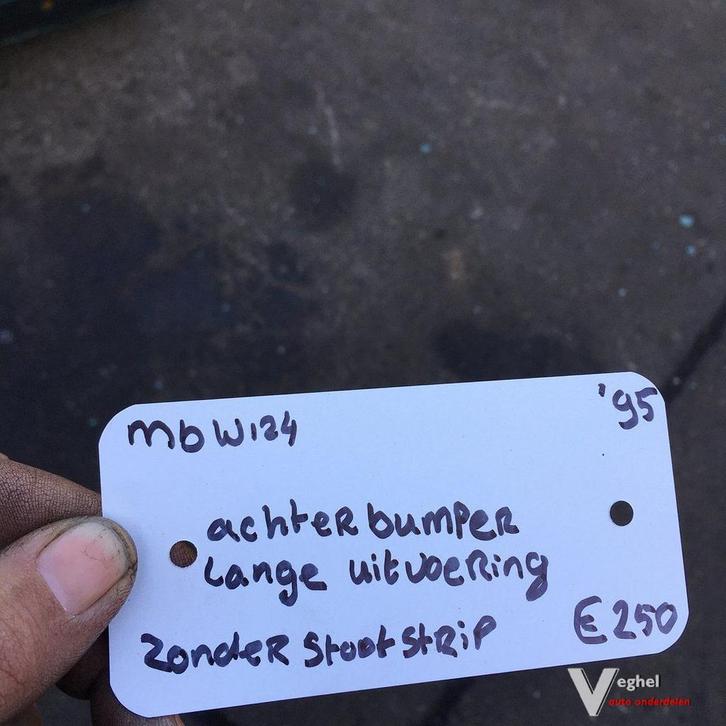 mb W124 '95
achter bumper
Lange uitvoering
zonder Stootstrip €250
Veghel
auto onderdelen